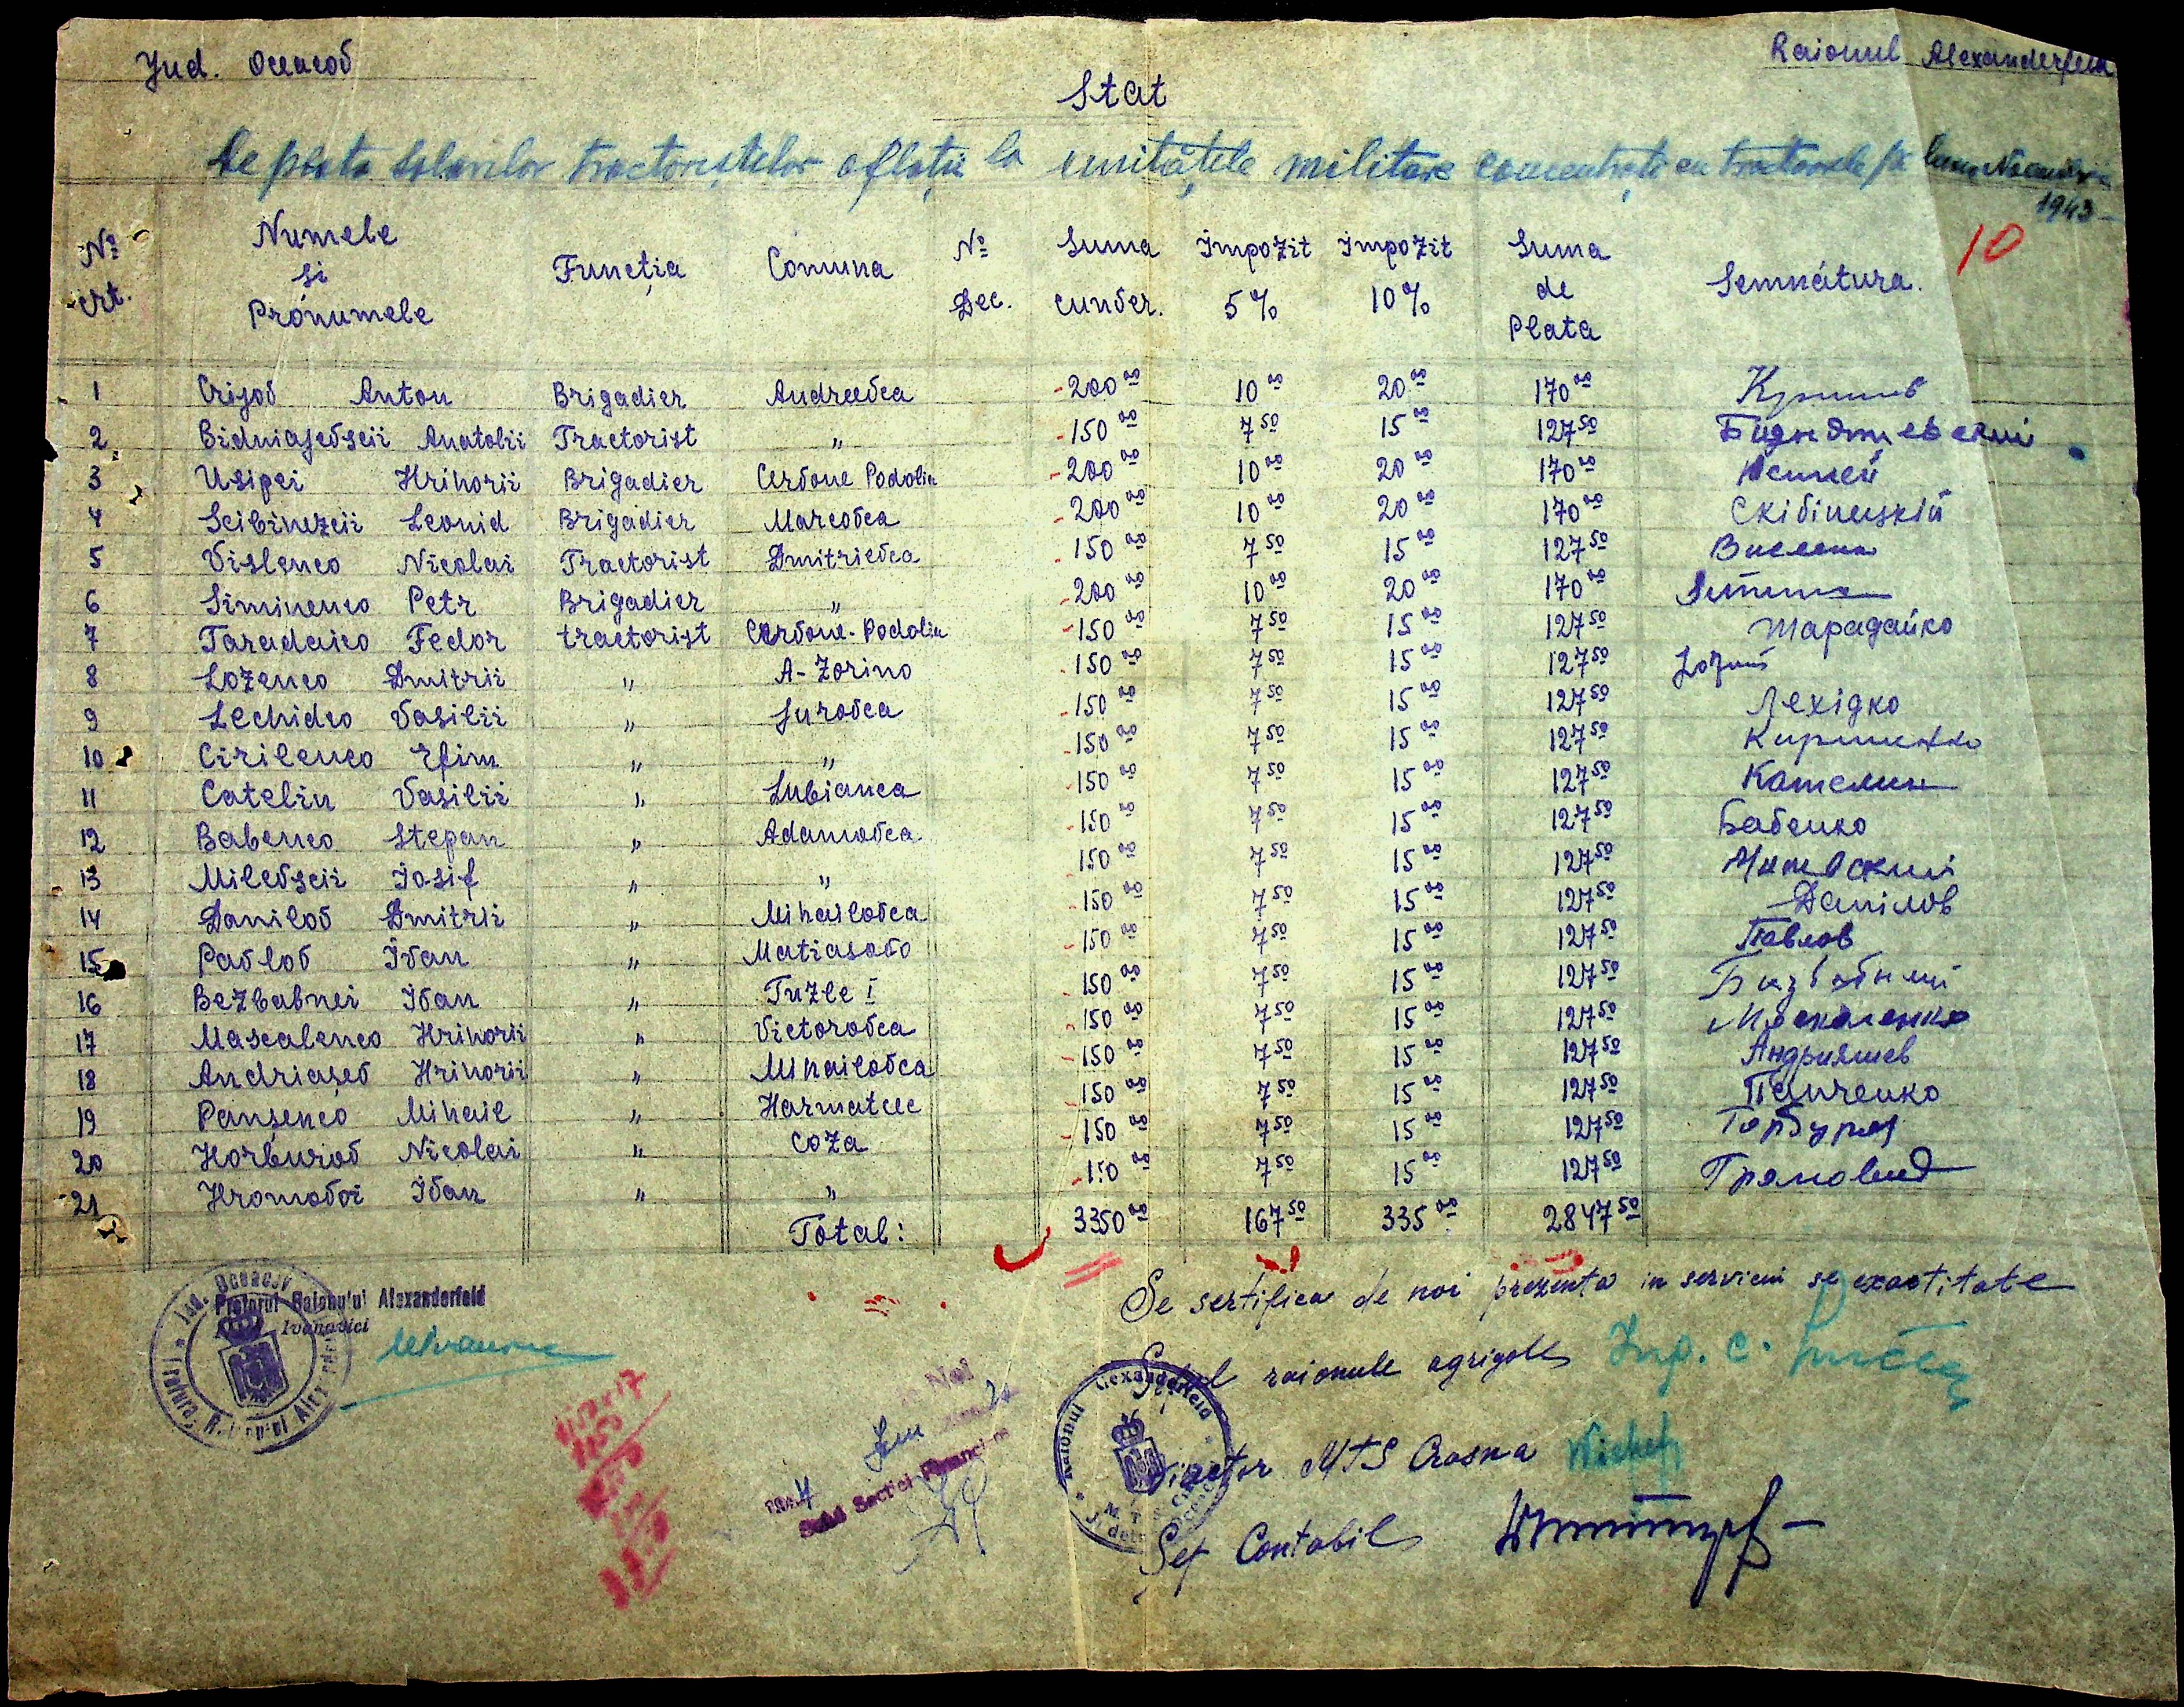 Jud. Oceacov
Raionul Alexanderfeld
Stat
De plata salariilor tractoriștilor aflați la unitățile militare concentrate cu tractoarele pe luna Noembrie
1943
10
№ crt. Numele si Pronumele Funcția Comuna № Dec. Suma cuvder. Impozit 5% Impozit 10% Suma de Plata Semnătura.
1 Crijov Anton Brigadier Andreevca 200 00 10 00 20 00 170 00
2 Bidniajevscii Anatolii Tractorist " 150 00 7 50 15 00 127 50
3 Usipei Hrihorii Brigadier Cervone Podolia 200 00 10 00 20 00 170 00
4 Scibinezcii Leonid Brigadier Marcovca 200 00 10 00 20 00 170 00 Скібинзкій
5 Vislenco Nicolai Tractorist Dmitrievca 150 00 7 50 15 00 127 50
6 Siminenco Petr Brigadier " 200 00 10 00 20 00 170 00
7 Taradaico Fedor tractorist Cervone-Podolia 150 00 7 50 15 00 127 50 Тарадайко
8 Lozenco Dmitrii " A-Zorino 150 00 7 50 15 00 127 50
9 Lechidco Vasilii " Jurovca 150 00 7 50 15 00 127 50 Лехідко
10 Cirilenco Efim " " 150 00 7 50 15 00 127 50
11 Catelin Vasilii " Lubianca 150 00 7 50 15 00 127 50 Кателин
12 Babenco Stepan " Adamovca 150 00 7 50 15 00 127 50 Бабенко
13 Milevscii Iosif " " 150 00 7 50 15 00 127 50
14 Danilov Dmitrii " Mihailovca 150 00 7 50 15 00 127 50 Данілов
15 Pavlov Ivan " Matiasovo 150 00 7 50 15 00 127 50 Павлов
16 Bezbabnei Ivan " Tuzle I 150 00 7 50 15 00 127 50
17 Mascalenco Hrihorii " Victorovca 150 00 7 50 15 00 127 50 Москаленко
18 Andriașev Hrihorii " Mihailovca 150 00 7 50 15 00 127 50 Андрияшев
19 Panșenco Mihail " Harmatuc 150 00 7 50 15 00 127 50 Панченко
20 Horburov Nicolai " Coza 150 00 7 50 15 00 127 50
21 Hromovoi Ivan " " 150 00 7 50 15 00 127 50
Total: 3350 00 167 50 335 00 2847 50
Pretorul Raionului Alexanderfeld
Ivanovici
Se sertifica de noi prezenta in serviciu se exactitate
Șeful raionule agrigole Ing. C.
Șeful Sectiei Financiare
Raionul Alexanderfeld
Director MTS Crasna
Șef Contabil